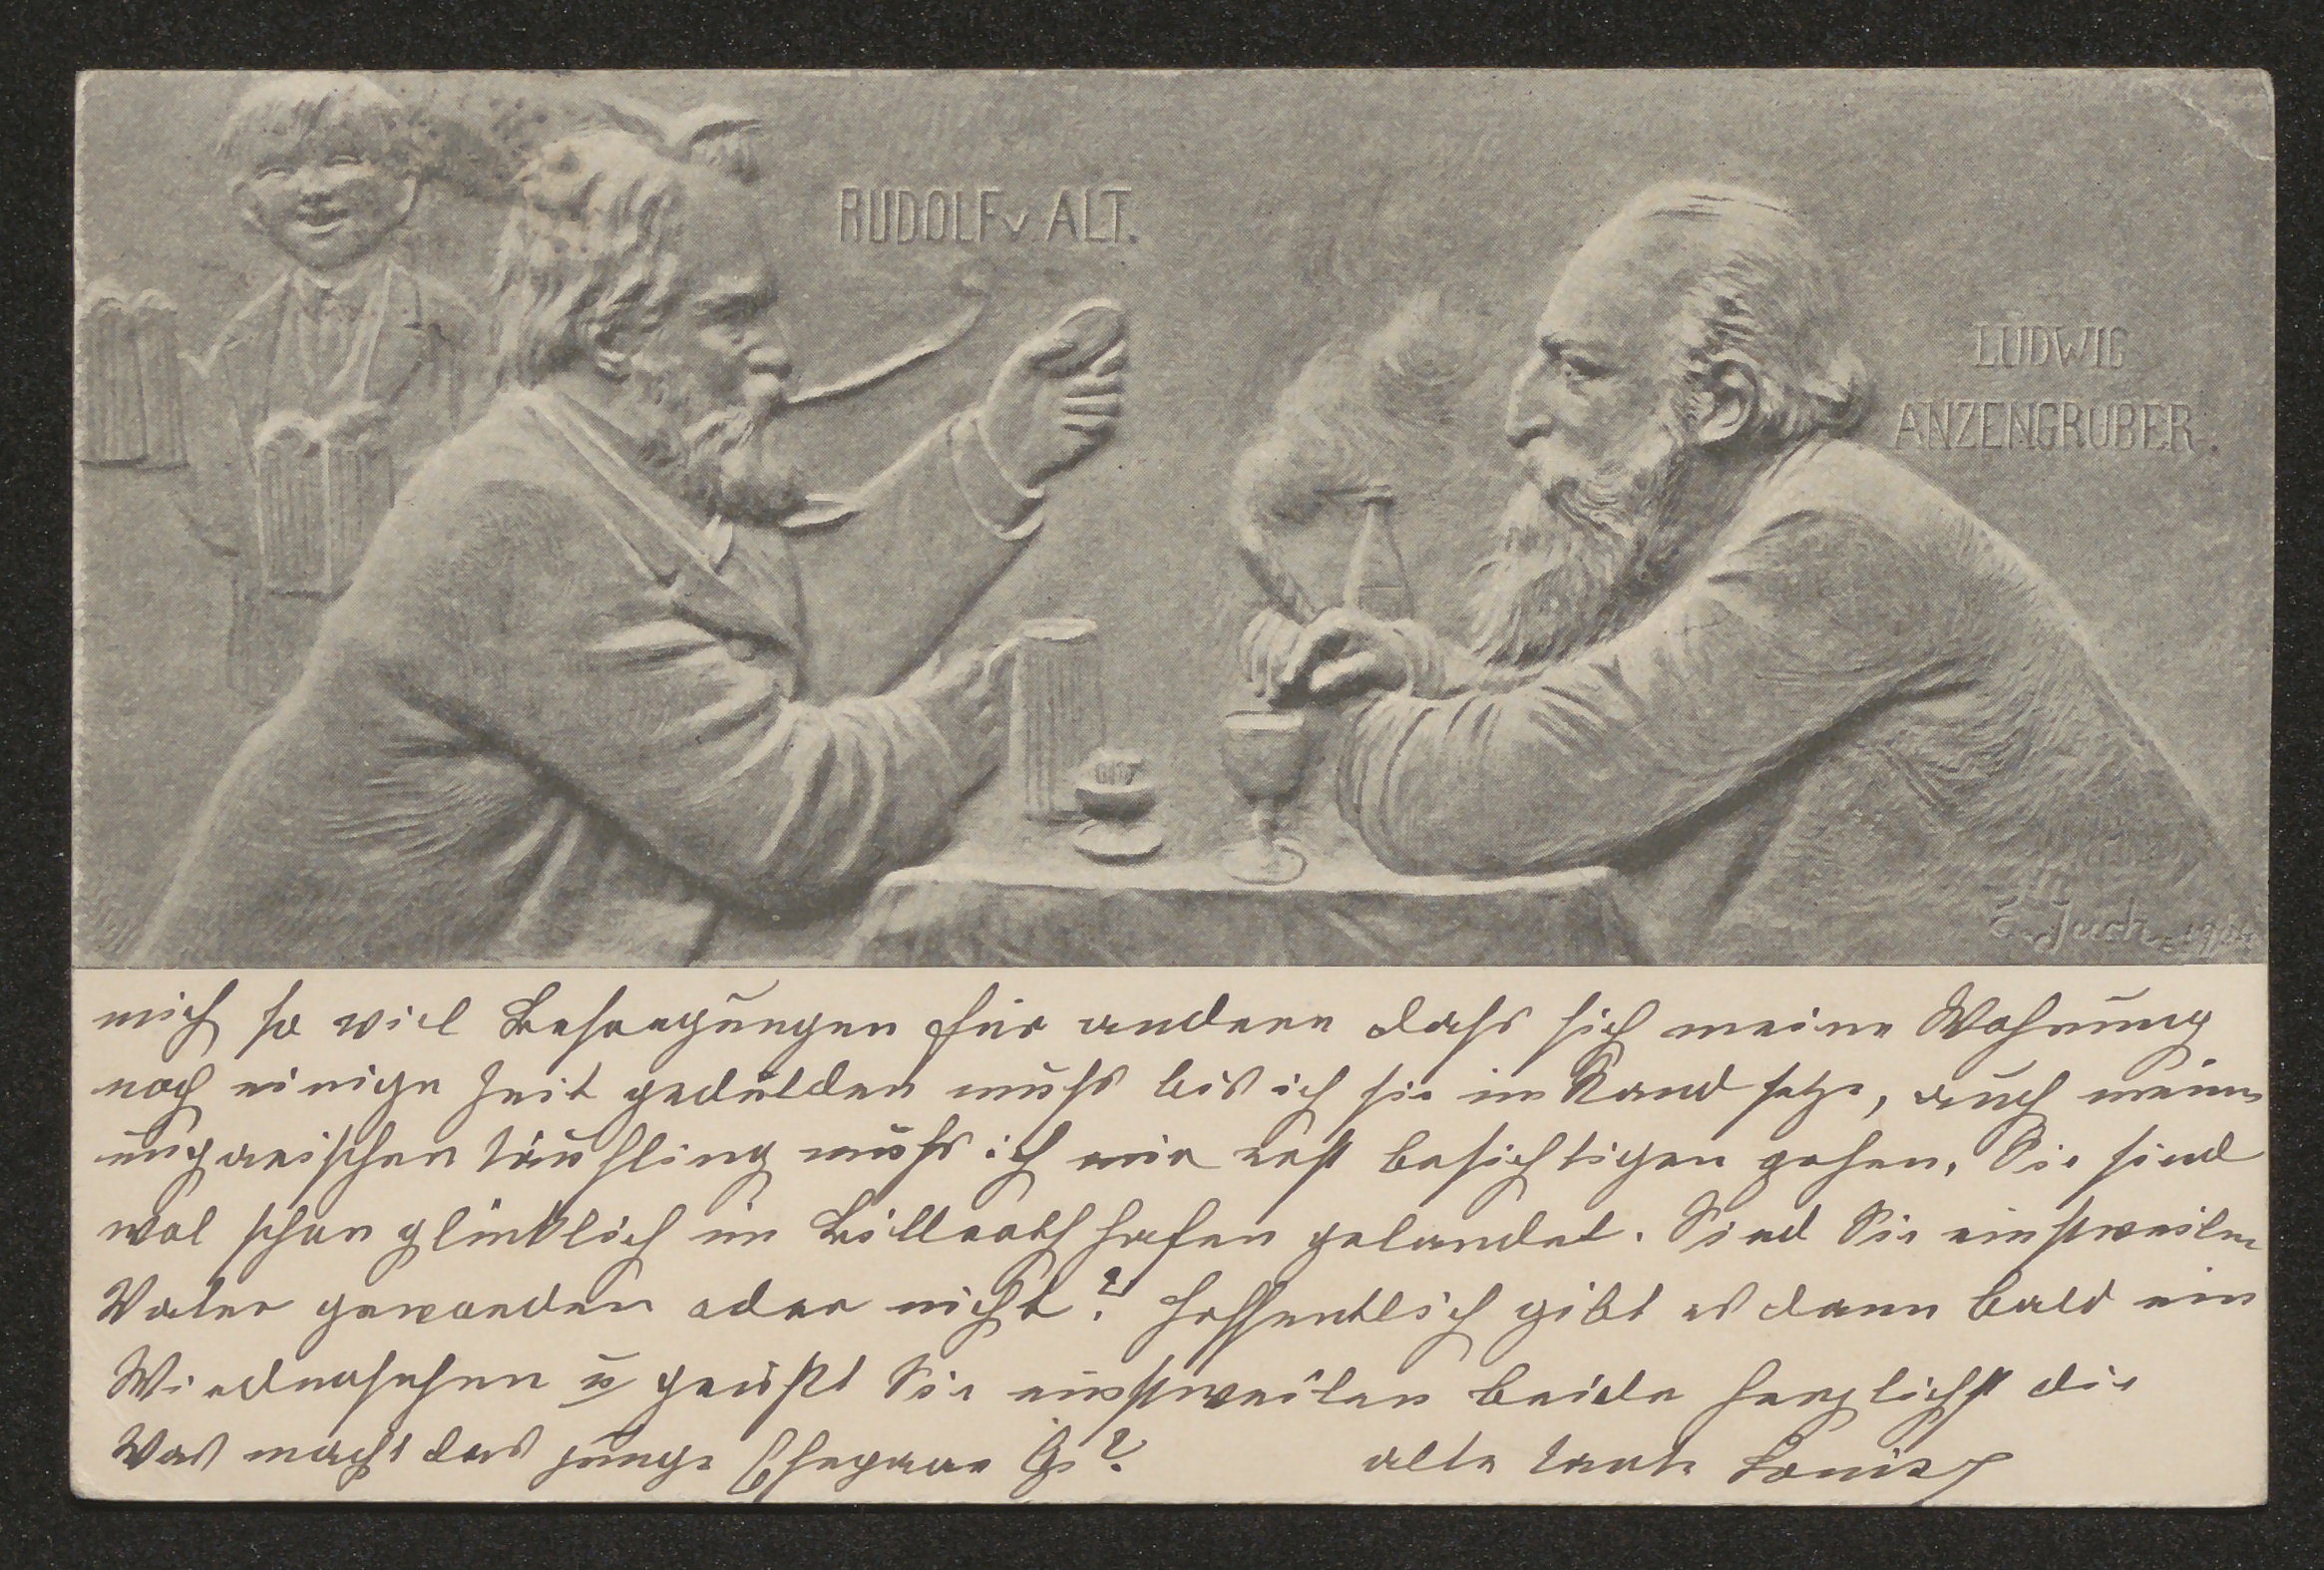 RUDOLF v. ALT.
LUDWIG
ANZENGRUBER.
E. Juch 1904
mich so viel Besorgungen für andere dass sich meine Wohnung
noch einige Zeit gedulden muss bis ich sie in Stand setze, auch meinen
ungarischen Täufling muss ich mir erst besichtigen gehen. Sie sind
wol schon glücklich im Billroth hafen gelandet. Sind Sie einstweilen
Vater geworden oder nicht? Hoffentlich gibt es dann bald ein
Wiedersehen u grüsst Sie einstweilen beide herzlichst die
Was macht das junge Ehepaar G?
alte Tante Louise